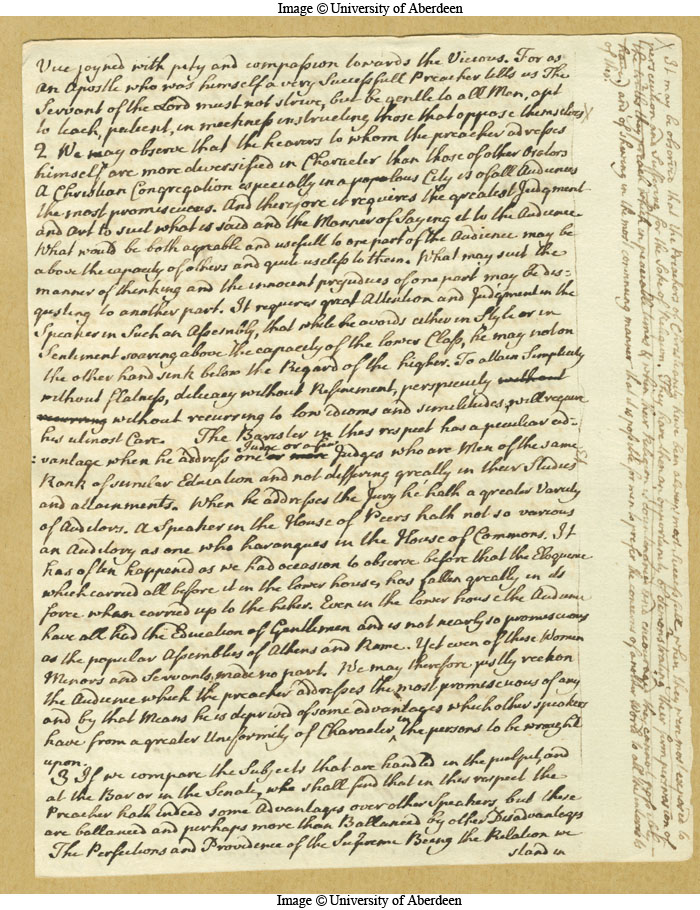 Image © University of Aberdeen
Vice joyned with pity and compassion towards the Vicious. For as
an Apostle who was himself a very Successfull Preacher tells us The
Servant of the Lord must not strive, but be gentle to all Men, apt
to teach, patient, in meekness instructing those that oppose themselves X
2. We may observe that the hearers to whom the preacher adresses
himself are more diversified in Character than those of other Orators
A Christian Congregation especially in a populous City is of all Audiences
the most promiscuous. And therefore it requires the greatest Judgment
and Art to suit what is said and the Manner of Saying it to the Audience
What would be both agreable and usefull to one part of the Audience may be
above the capacity of others and quite useless to them. What may suit the
manner of thinking and the innocent prejudices of one part may be dis=
gusting to another part. It requires great Attention and Judgment in the
Speaker in Such an Assembly, that while he avoids either in Style or in
Sentiment soaring above the capacity of the lower Class, he may not on
the other hand sink below the Regard of the higher. To attain Simplicity
without flatness, delicacy without Refinement, perspicuity without
recurring without recurring to low idioms and similitudes, will require
his utmost Care. The Barister in this respect has a peculiar ad-
Judge or a few
vantage when he address one or more Judges who are Men of the same
Rank of similar Education and not differing greatly in their Studies
and attainments. When he addresses the Jury he hath a greater Variety
of Auditors. A Speaker in the House of Peers hath not so various
an Auditory as one who harangues in the House of Commons. It
has often happened as we had occasion to observe before that the Eloquence
which carried all before it in the lower house, has fallen greatly in its
force when carried up to the higher. Even in the lower house the Audience
have all had the Education of Gentlemen and is not nearly so promiscuous
as the popular Assemblies of Athens and Rome. Yet even of these Women
Minors and Servants, made no part. We may therefore justly reckon
the Audience which the preacher addresses the most promiscuous of any
and by that Means he is deprived of some advantages which other speakers
have from a greater Uniformity of Character in the persons to be wrought
upon.
3 If we compare the Subjects that are handled in the pulpit, and
at the Bar or in the Senate, who shall find that in this respect the
Preacher hath indeed some Advantages over other Speakers, but these
are ballanced and perhaps more than Ballanced by other Disadvantages
The Perfections and Providence of the Supreme Being the Relation we
stand in
X It may be observed that the Preachers of Christianity have been always most Successfull when they were most exposed to
persecution and Suffering for the Sake of Religion. They have then an opportunity of demonstrating their own persuasion of
the truths they preach which in peaceable times &amp; when their Religion is countenanced and encouraged they cannot
and of shewing in the most convincing manner that it is possible for men to prefer the concerns of another World to all the interests
of this
Image © University of Aberdeen